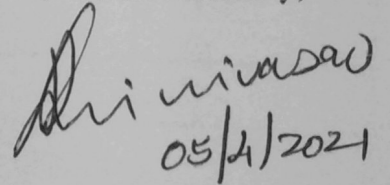 Srinivasao
05/4/2021